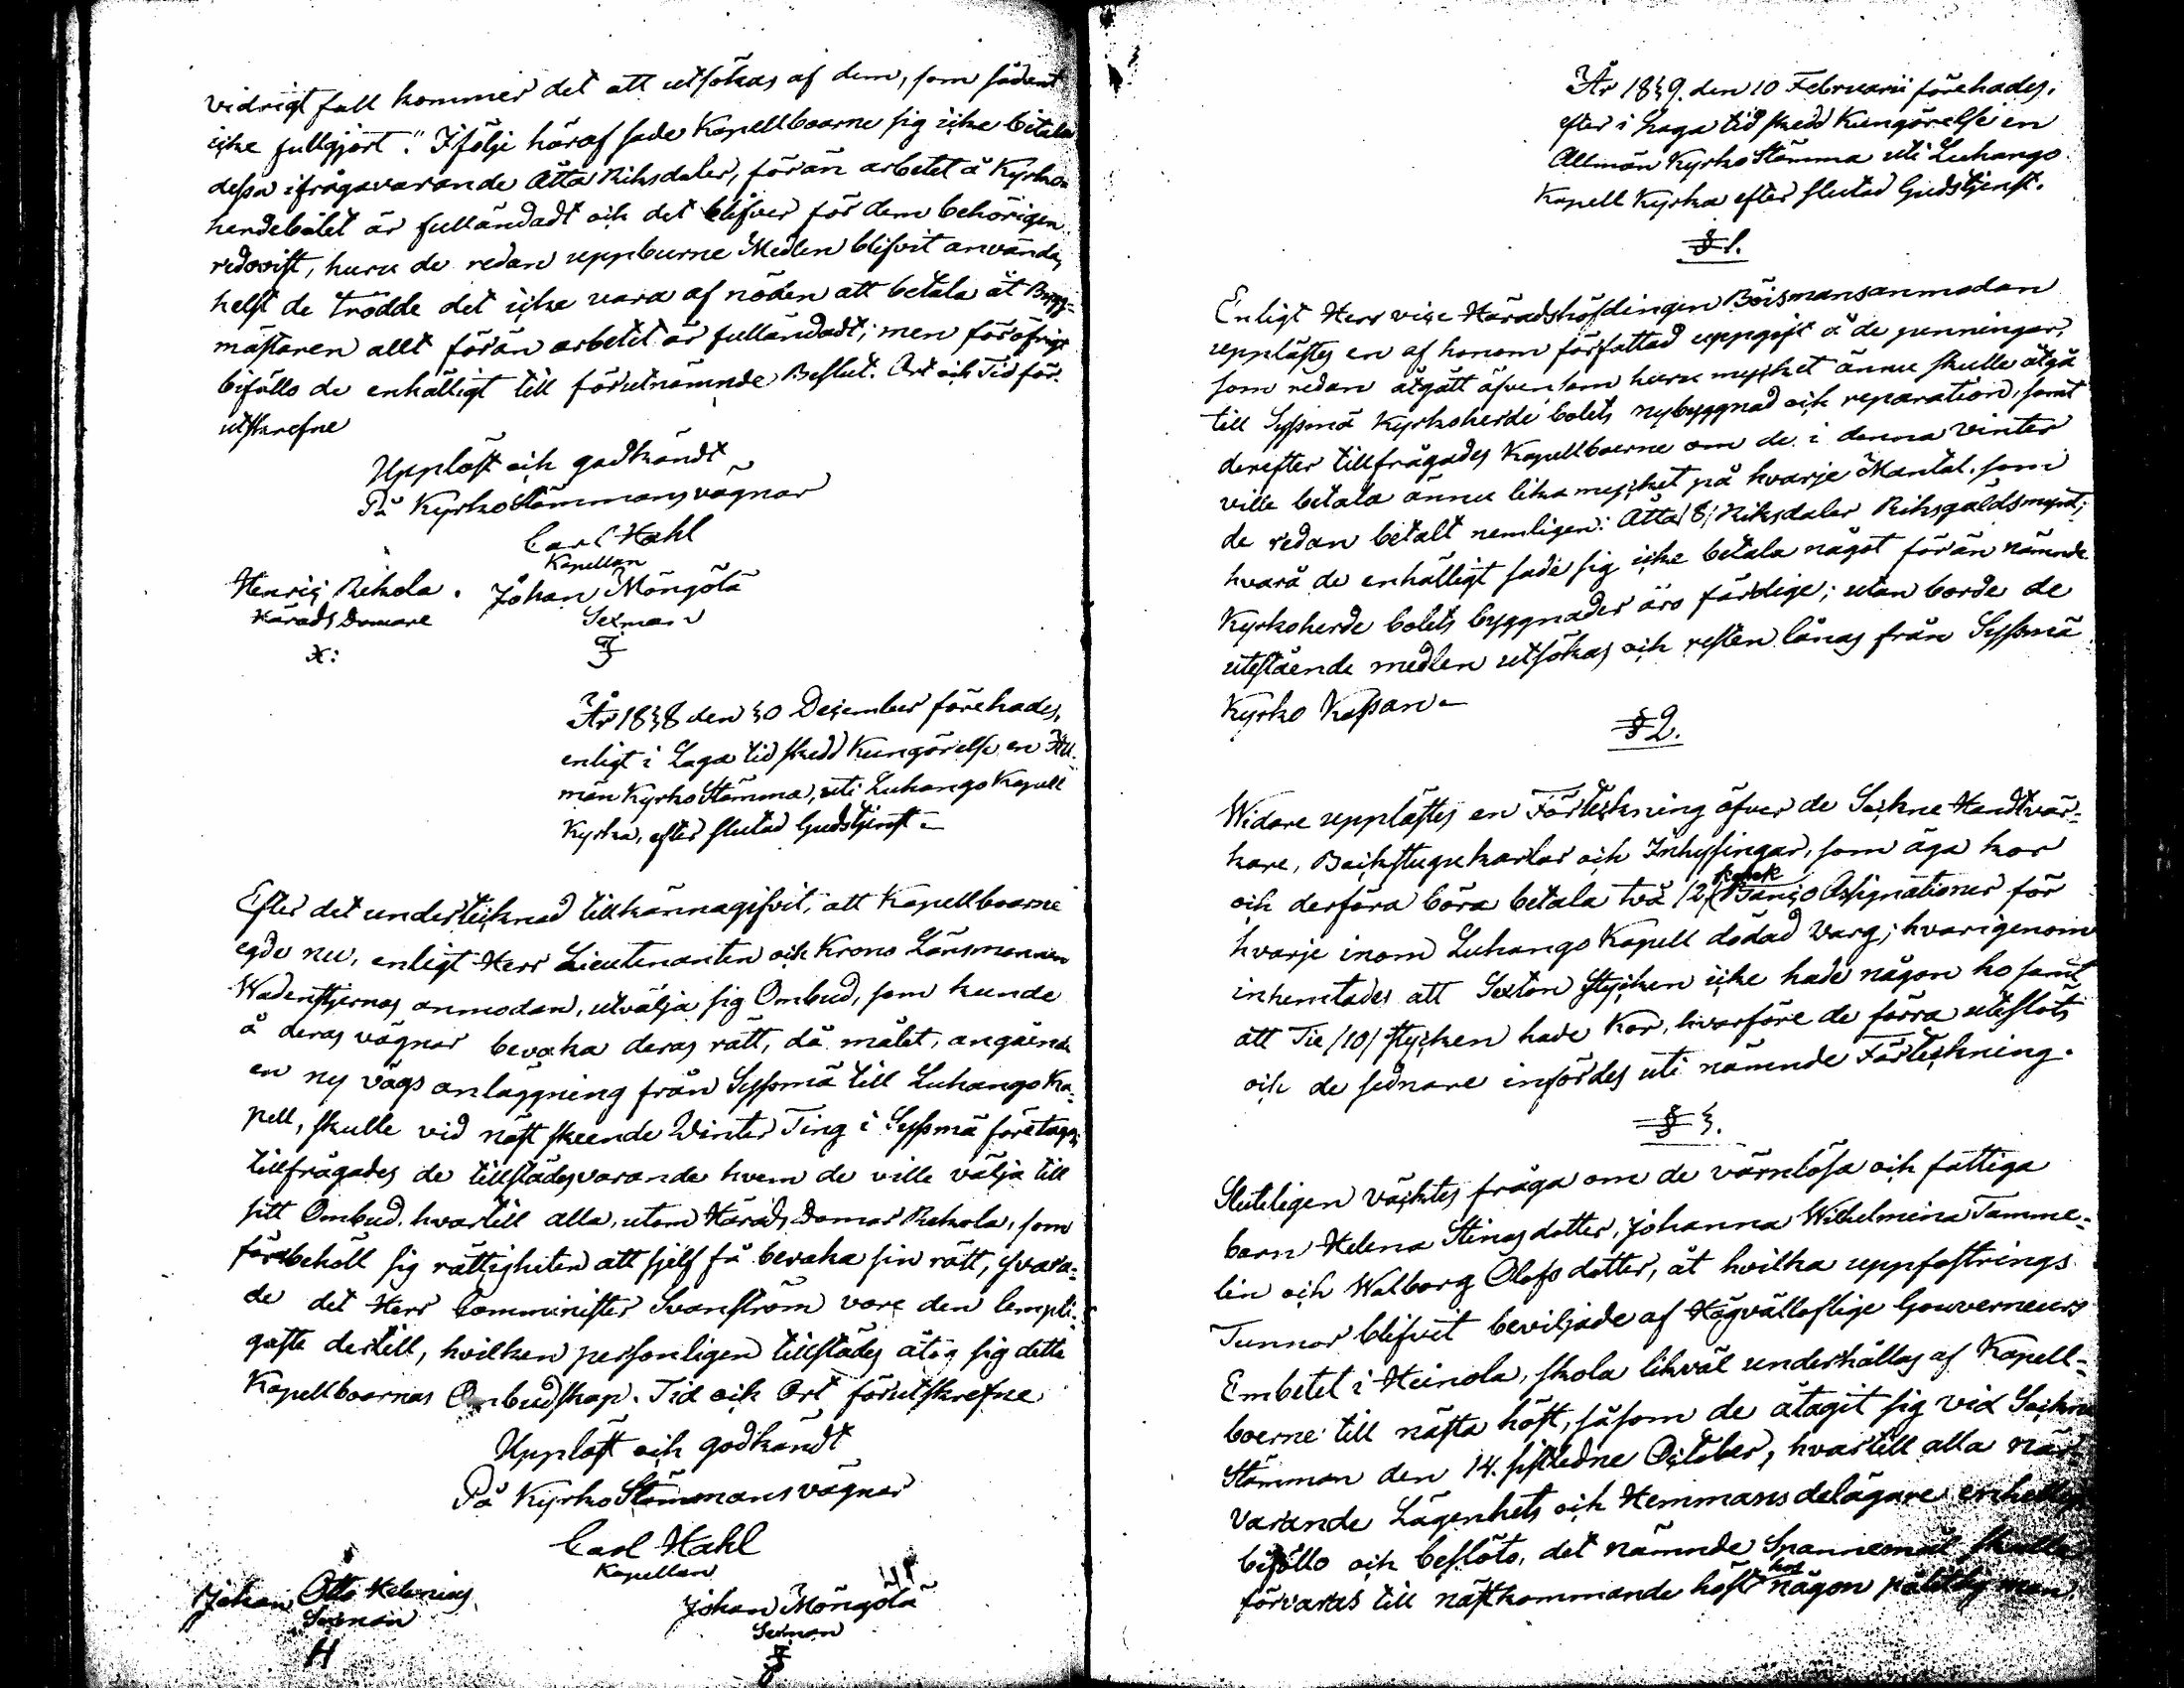 vidrigt fall kommer det att utsökas af dem, som sådant
icke fullgjort." Ifölje häraf sade Kapellboarne sig icke betala
dessa ifrågavarande Åtta Riksdaler, förän arbetet å Kyrko-
herdebölet är fulländadt och det blifver för dem behörigen
redovist, huru de redan uppburne Medlen blifvit använda,
helst de trodde det icke vara af nöden att betala åt Bygg-
mästaren allt förän arbetet är fulländadt; men föröfrigt
biföllo de enhälligt till förutnämnde Beslut. Ort och Tid för-
utskrefne
Uppläst och godkändt
På KyrkoStämmans vägnar
Carl Hahl
Kapellan
Henric Rekola. Johan Mängölä
HäradsDomare Sexman
År 1838 den 30 December förehades,
enligt i Laga tid skedd Kungörelse en All-
män KyrkoStämma, uti Luhango Kapell
Kyrka, efter slutad Gudstjenst
Efter det undertecknad tillkännagifvit, att Kapellboarne
egde nu, enligt Herr Lieutenanten och Krono Länsmannen
Wadenstjernas anmodan, utvälja sig Ombud, som kunde
å deras vägnar bevaka deras rätt, då målet, angående
en ny vägs anläggning från Syssmä till Luhango Ka-
pell, skulle vid näst skeende Winter Ting i Syssmä företagas,
tillfrågades de tillstädesvarande hvem de ville välja till
sitt Ombud, hvartill alla, utom HäradsDomar Rekola, som
förbehöll sig rättigheten att sjelf få bevaka sin rätt, svara-
de det Herr Comminister Svanström vore den lempli-
gaste dertill, hvilken personligen tillstädes åtog sig detta
Kapellboarnas Ombudskap. Tid och Ort förutskrefne
Uppläst och godkändt
På KyrkoStämmans vägnar
Carl Hahl
Kapellan
Johan Otto Helenius Johan Mängölä
Sexman Sexman
H
År 1839. den 10 Februarii förehades,
efter i Laga tid skedd Kungörelse en
Allmän KyrkoStämma uti Luhango
Kapell Kyrka efter slutad Gudstjenst.
§ 1.
Enligt Herr vice Häradshöfdingen Böismans anmodan
upplästes en af honom författad uppgift å de penningar,
som redan åtgått äfvensom huru mycket ännu skulle åtgå
till Syssmä Kyrkoherde bolets nybyggnad och reparation, samt
derefter tillfrågades Kapellboerne om de i denna vinter
ville betala ännu lika mycket på hvarje Mantal, som
de redan betalt nemligen: Åtta /8/ Riksdaler Riksgäldsmynt;
hvarå de enhälligt sade sig icke betala något förän nämnde
Kyrkoherde bolets byggnader äro färdige; utan borde de
utestående medlen utsökas och resten lånas från Syssmä
Kyrko Kassan
§ 2.
Widare upplästes en Förteckning öfver de Sockne Handtvär-
kare, Backstugukarlar och Inhysingar, som äga kor
och derföra böra betala två /2/ kopek Banco Assignationer för
hvarje inom Luhango Kapell dödad Varg; hvarigenom
inhemtades att Sexton stycken icke hade någon ko samt
att Tie /10/ stycken hade Kor, hvarföre de förra uteslöts
och de sednare infördes uti nämnde Förteckning.
§ 3.
Sluteligen väcktes fråga om de värnlösa och fattiga
barn Helena Stinas dotter, Johanna Wilhelmina Tamme-
lin och Walborg Olofs dotter, åt hvilka uppfostrings
Tunnor blifvit beviljade af Högvälloflige Gouverneurs
Embetet i Heinola, skola likväl underhållas af Kapell-
boerne till nästa höst, såsom de åtagit sig vid Sockne
Stämman den 14. sistledne October, hvartill alla när-
varande Lägenhets och Hemmans delägare enhälligt
biföllo och beslöto, det nämnde Spannemål skulle
förvaras till nästkommande höst hos någon pålitlig man,